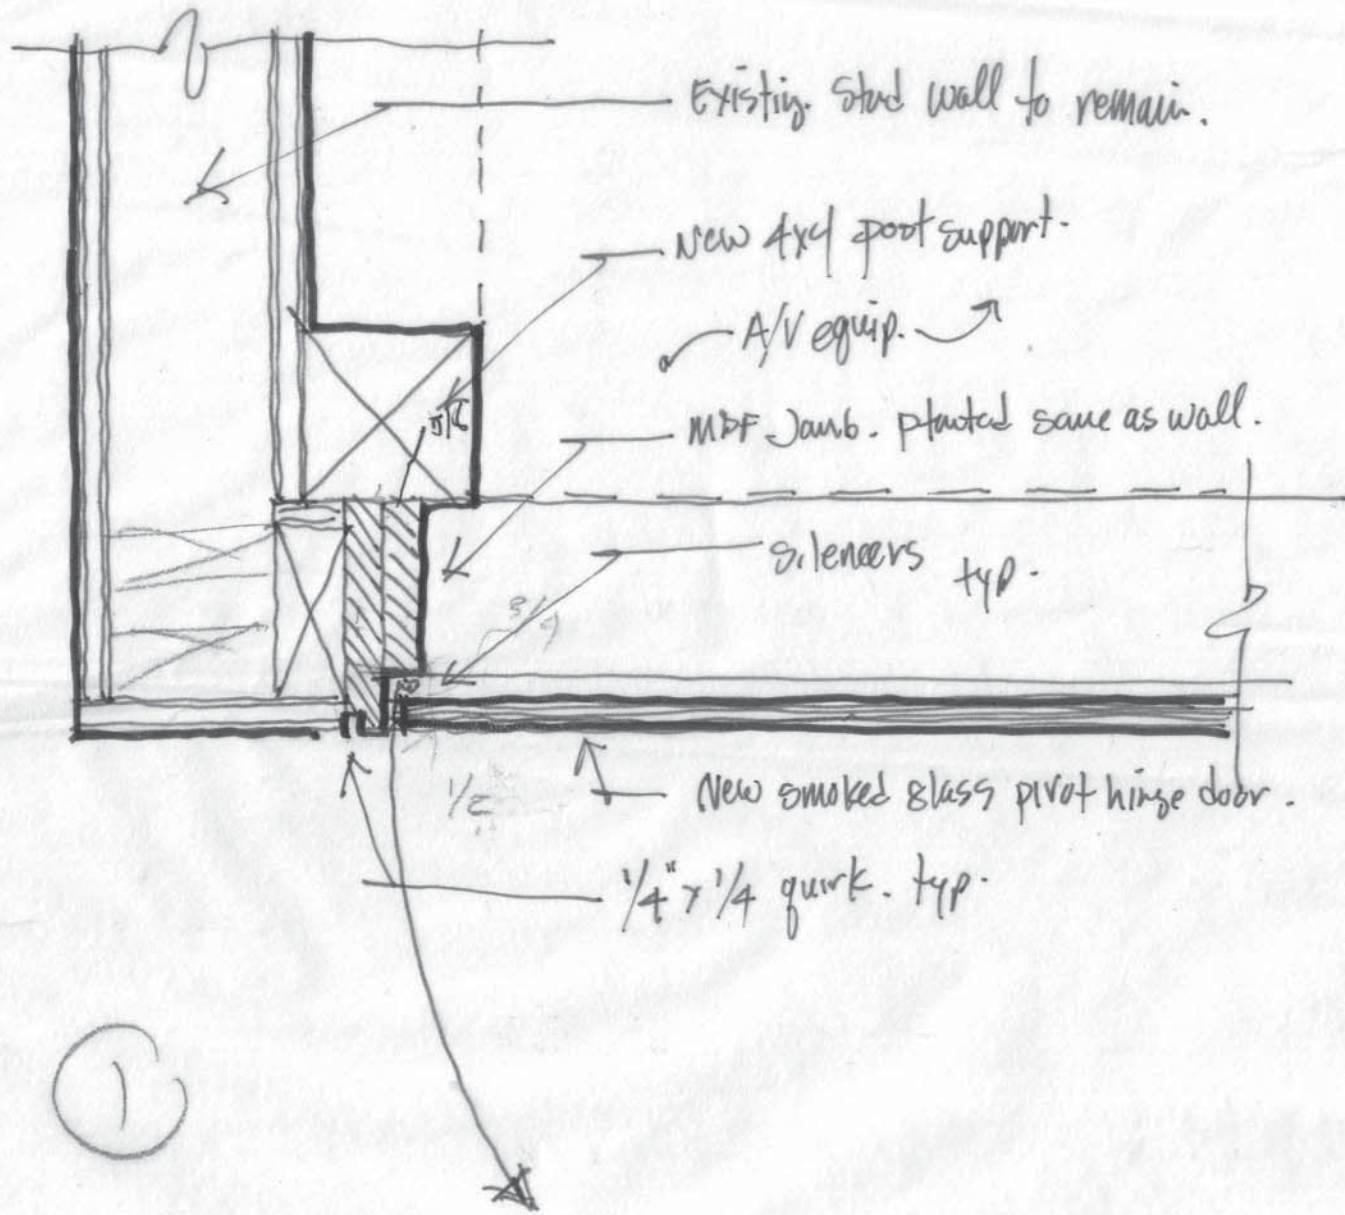 Existing. Stud wall to remain.
New 4x4 post support.
A/V equip.
MDF Jamb. painted same as wall.
silencers typ.
3/4
New smoked glass pivot hinge door.
1/2"
1/4" x 1/4 quirk. typ.
1